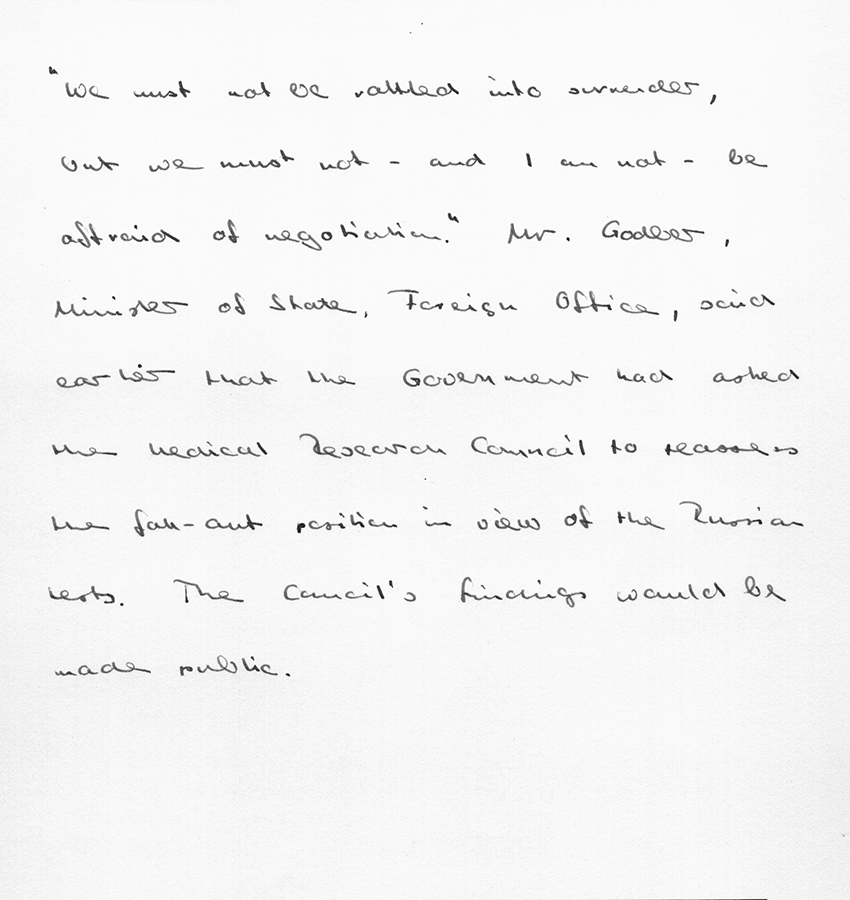 "We must not be rattled into surrender,
but we must not - and I am not - be
afraid of negotiation." Mr. Godber,
Minister of State, Foreign Office, said
earlier that the Government had asked
the Medical Research Council to reassess
the fall-out position in view of the Russian
tests. The Council's findings would be
made public.